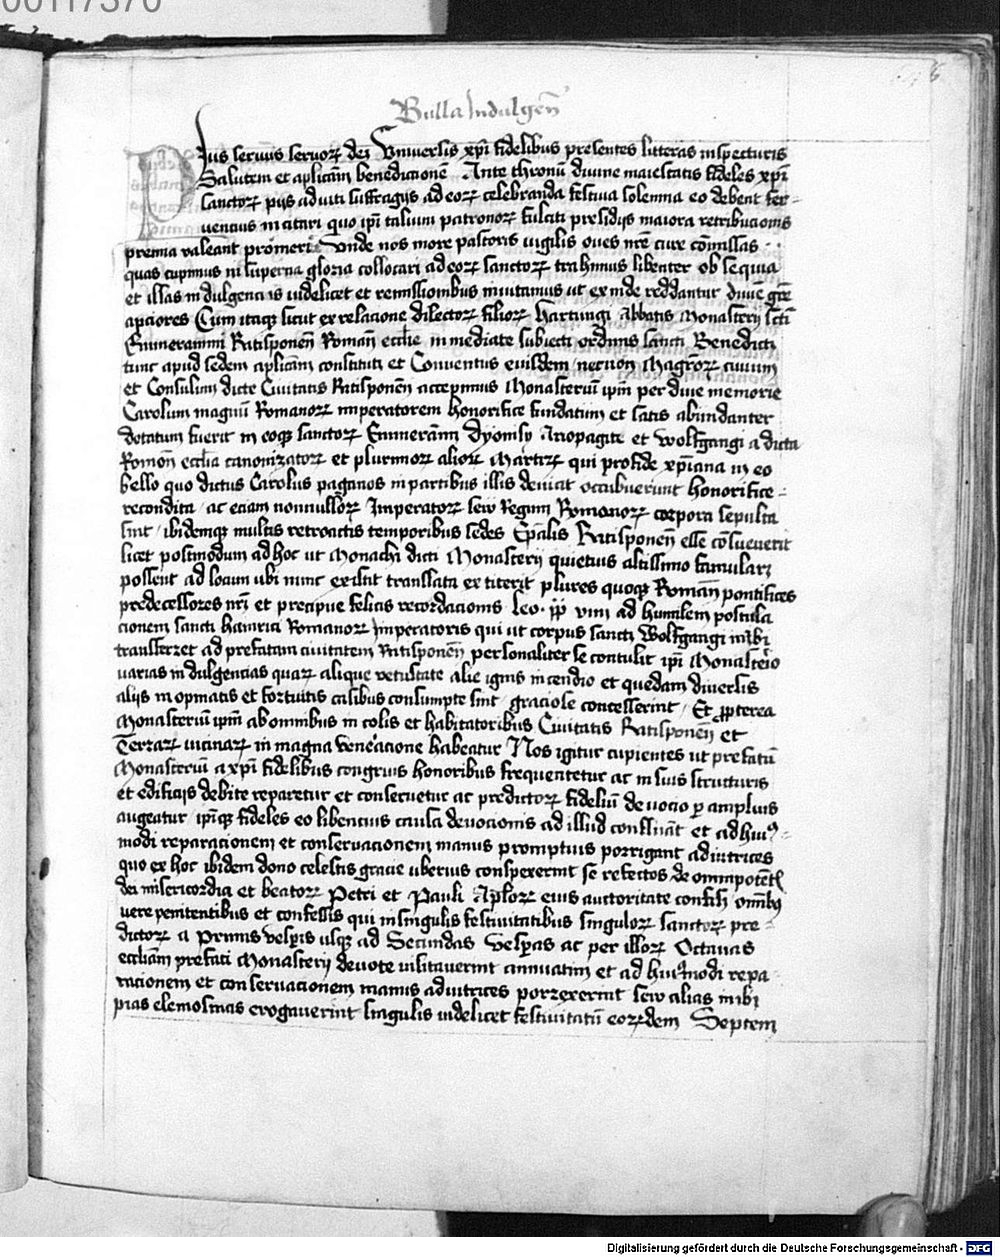 00117370
Bulla Indulgen̄
Pius seruus seruoꝝ dei Vniuersis xp̄i fidelibus presentes litteras inspecturis
Salutem et aplicām benedictione Ante thronū diuine maiestatis fideles xp̄i
sanctoꝝ pijs adiuti suffragijs ad eoꝝ celebranda festiua solemnia eo debent fer-
uencius in citari quo ip̄i talium patronoꝝ fulciti presidijs maiora retribucionis
premia valeant promeri Vnde nos more pastoris vigilis oues nr̄e cure cōmissas
quas cupimus in superna gloria collocari ad eoꝝ sanctoꝝ trahimus libenter ob sequia
et illas in dulgencijs videlicet et remissionibus inuitamus ut ex inde reddantur diuīe grē
apciores Cum itaqꝫ sicut ex relacione dilectoꝝ filioꝝ Hartungi Abbatis Monasterij scti
Emmerammi Ratisponen̄ Roman̄ ecclie in mediate subiecti ordinis sancti Benedicti
tunc apud sedem aplicām constituti et Conuentus euisdem necnon Magr̄oꝝ ciuium
et Consulum dicte Ciuitatis Ratisponen̄ accepimus Monasteriū ip̄m per diue memorie
Carolum magnū Romanoꝝ imperatorem honorifice fundatum et satis abundanter
dotatum fuerit in eoqꝫ sanctoꝝ Emmerām̄ Dyonisy Ariopagite et wolfgangi a dicta
Romān̄ ecclīa canonizatoꝝ et plurimoꝝ alioꝝ Martirꝝ qui pro fide xp̄iana in eo
bello quo dictus Carolus paganos in partibus illis deuicit occubuerunt honorifice-
recondita ac eciam nonnulloꝝ Imperatoꝝ sew Regum Romanoꝝ corpora sepulta
sint ibidemqꝫ multis retroactis temporibus sedes Ep̄alis Ratisponen̄ esse cōsueuerit
licet postmodum ad hoc ut Monachi dicti Monasterij quietius altissimo famulari
possent ad locum ubi nunc existit translata extiterit plures quoqꝫ Romān̄ pontifices
predecessores nr̄i et precipue felicis recordacionis leo pp̄ viiij ad humilem postula
cionem sancti hainrici Romanoꝝ Imperatoris qui ut corpus sancti Wolfgangi inibi
transferret ad prefatam ciuitatem Ratisponen̄ personaliter se contulit ip̄i Monasterio
uarias in dulgencias quaꝝ alique vetustate alie ignis in cendio et quedam diuersis
alijs in opinatis et fortuitis casibus consumpte sint graciose concesserint Et ꝓpterea
Monasteriū ip̄m ab omnibus in colis et habitatoribus Ciuitatis Ratisponen̄ et
Terraꝝ vicinaꝝ in magna veneracione habeatur Nos igitur cupientes ut prefatū
Monasteriū a xp̄i fidelibus congruis honoribus frequentetur ac in suis structuris
et edificijs debite reparetur et conseruetur ac predictoꝝ fidelium deuocio ꝑ amplius
augeatur ip̄iqꝫ fideles eo libencius causa deuocionis ad illud confluāt et ad huiꝰ-
modi reparacionem et conseruacionem manus promptius porrigant adiutrices
quo ex hoc ibidem dono celestis gracie uberius conspexerint se refectos de omnipotēt
dei misericordia et beatoꝝ Petri et Pauli Apl̄oꝝ eius auctoritate confisi omībꝰ
vere penitentibus et confessis qui in singulis festiuitatibus singuloꝝ sanctoꝝ pre-
dictoꝝ a Primis vesp̄is usqꝫ ad Secundas Vesp̄as ac per illoꝝ Octauas
eccliam prefati Monasterij deuote visitauerint annuatim et ad huiꝰmodi repa-
racionem et conseruacionem manus adiutrices porrexerint sew alias inibi
pias elemosinas erogauerint singulis videlicet festiuitatū eoꝝdem Septem
Digitalisierung gefördert durch die Deutsche Forschungsgemeinschaft - DFG